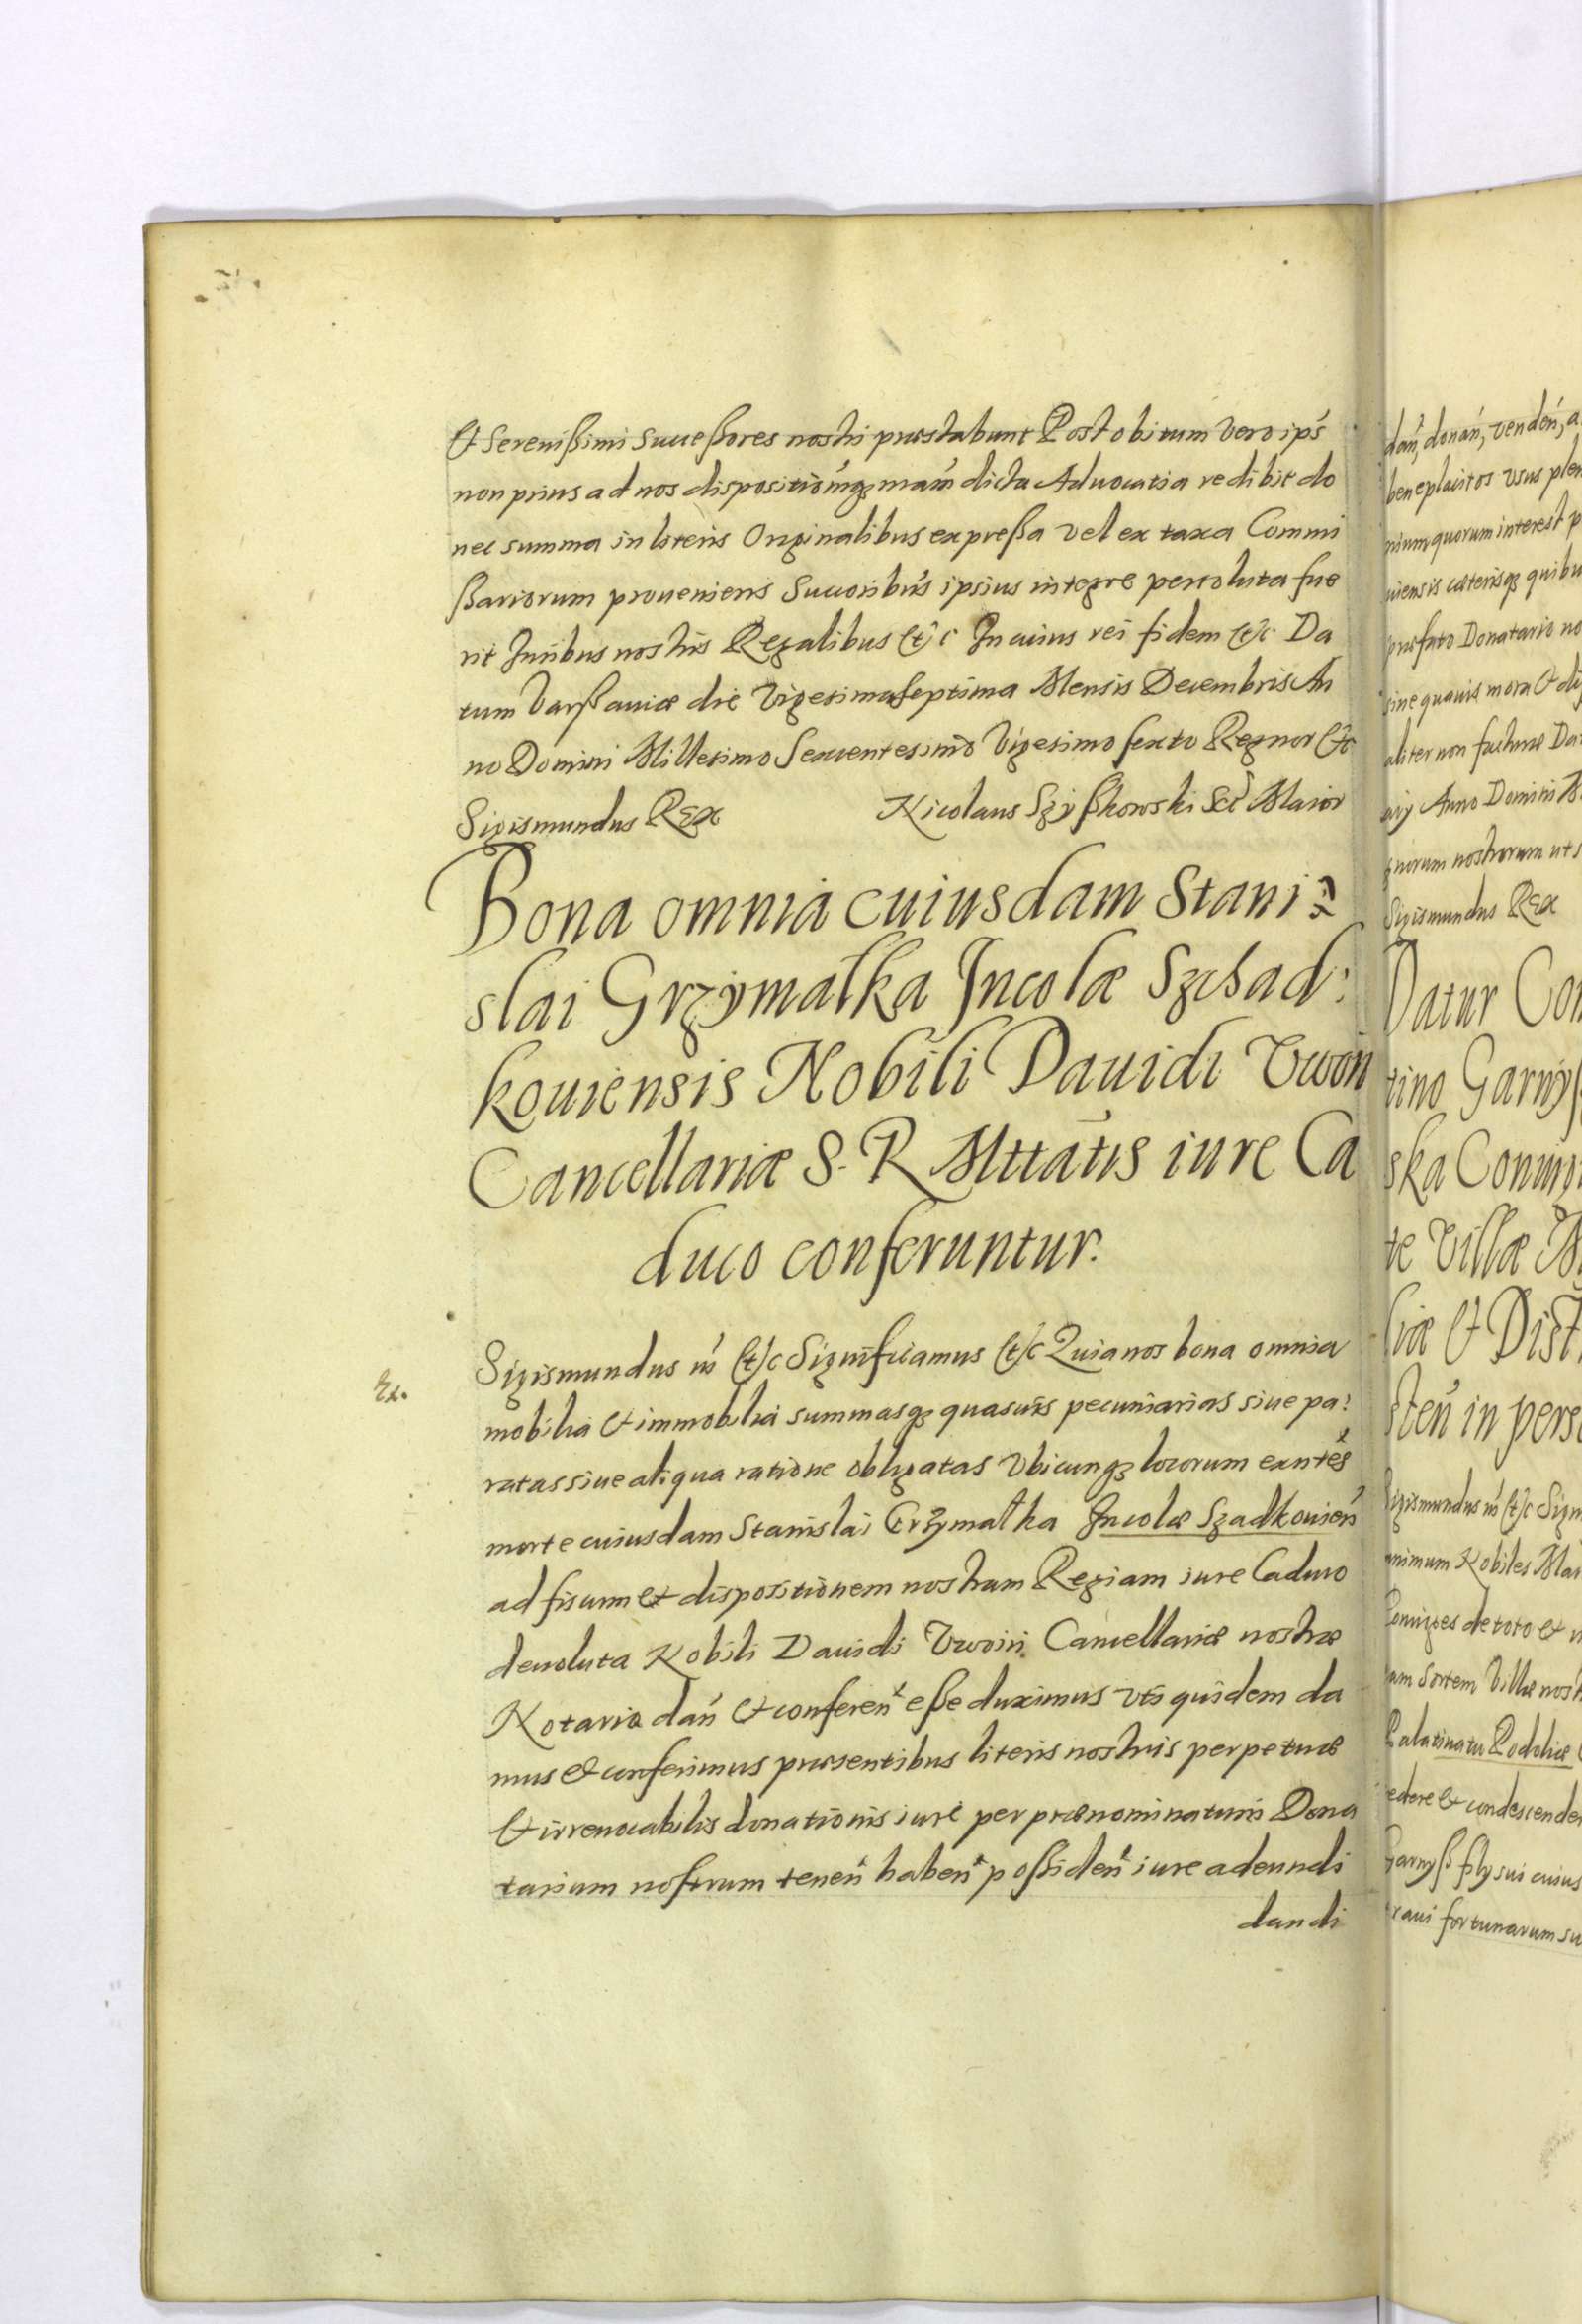 Et Serenißimi Succeßores nostri præstabunt Post obitum vero ips
non prius ad nos dispositionemq; nram dicta Aduocatia redibit do
nec summa in literis Originalibus expreßa vel ex taxa Commi
ßariorum proueniens Succoribus ipsius integre persoluta fue
rit Juribus nostris Regalibus etc In cuius rei fidem etc Da
tum Varßauiæ die Vigesima septima Mensis Decembris An
no Domini Millesimo Sexcentesimo Vigesimo sexto Regnor etc
Sigismundus Rex Nicolaus Szyßkowski Sct Maior
Bona omnia cuiusdam Stani:
slai Grzymałka Incolæ Szchad:
kouiensis Nobili Dauidi Vwoin
Cancellariæ S. R Mttatis iure Ca
duco conferuntur.
Ex.
Sigismundus etc Significamus etc Quia nos bona omnia
mobilia et immobilia summasq; quasuis pecuniarias siue pa:
ratas siue aliqua ratione obligatas Vbicunq; locorum exntes
morte cuiusdam Stanislai Grzymałka Incolæ Szadkouien
ad fiscum et dispositionem nostram Regiam iure Caduco
deuoluta Nobili Dauidi Vwoin Cancellariæ nostræ
Notario dan et conferen eße duximus vti quidem da
mus et conferimus præsentibus literis nostris perpetuæ
et irreuocabilis donationis iure per prænominatum Dona
tarium nostrum tenen haben poßiden iure adeundi
dandi
dan, donan, venden, a
beneplacitos vsus plen
nium quorum interest p
uiensis cæterisq; quibu
præfato Donatario no
sine quauis mora et di
aliter non facturæ Da
Anno Domini M
gnorum nostrorum ut s
Sigismundus Rex
Datur Con
tino Garnyß
ska Coniug
te Villæ
liæ et Dist
sten in pers
Sigismundus etc Sign
nimum Nobiles Mar
Coniuges de toto et
am Sortem Villæ nost
Palatinatu Podoliæ
cedere et condescende
Garnyß sui cuius
traui fortunarum su